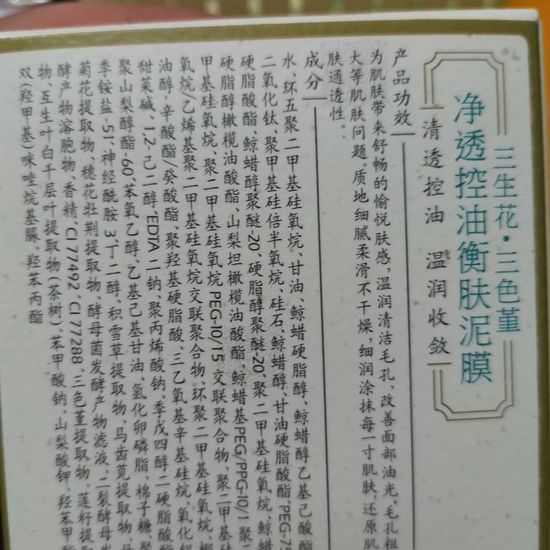 三生花·三色堇
净透控油衡肤泥膜
清透控油 温润收敛
产品功效
为肌肤带来舒畅的愉悦肤感，温润清洁毛孔，改善面部油光，毛孔粗
大等肌肤问题。质地细腻柔滑不干燥，细润涂抹每一寸肌肤，还原肌
肤通透性。
成分
水、环五聚二甲基硅氧烷、甘油、鲸蜡硬脂醇、鲸蜡醇乙基己酸酯
二氧化钛、聚甲基硅倍半氧烷、硅石、鲸蜡醇、甘油硬脂酸酯、PEG-75
硬脂酸酯、鲸蜡醇聚醚-20、硬脂醇聚醚-20、聚二甲基硅氧烷、鲸蜡
硬脂醇橄榄油酸酯、山梨坦橄榄油酸酯、鲸蜡基PEG/PPG-10/1 聚二
甲基硅氧烷、聚二甲基硅氧烷PEG-10/15 交联聚合物、聚二甲基硅
氧烷/乙烯基聚二甲基硅氧烷交联聚合物、环聚二甲基硅氧烷、椰
油醇-辛酸酯/癸酸酯、聚羟基硬脂酸、三乙氧基辛基硅烷、氧化铝
甜菜碱、1,2-己二醇、EDTA 二钠、聚丙烯酸钠、季戊四醇二硬脂酸
聚山梨醇酯-60、苯氧乙醇、乙基己基甘油、氢化卵磷脂、棉子糖、聚
季铵盐-51、神经酰胺 3、丁二醇、积雪草提取物、马齿苋提取物、母
菊花提取物、穗花牡荆提取物、酵母菌发酵产物滤液、二裂酵母
酵产物溶胞物、香精、CI 77492、CI 77288、三色堇提取物、莲籽提
物、互生叶白千层叶提取物（茶树）、苯甲酸钠、山梨酸钾、羟苯甲
双（羟甲基）咪唑烷基脲、羟苯丙酯